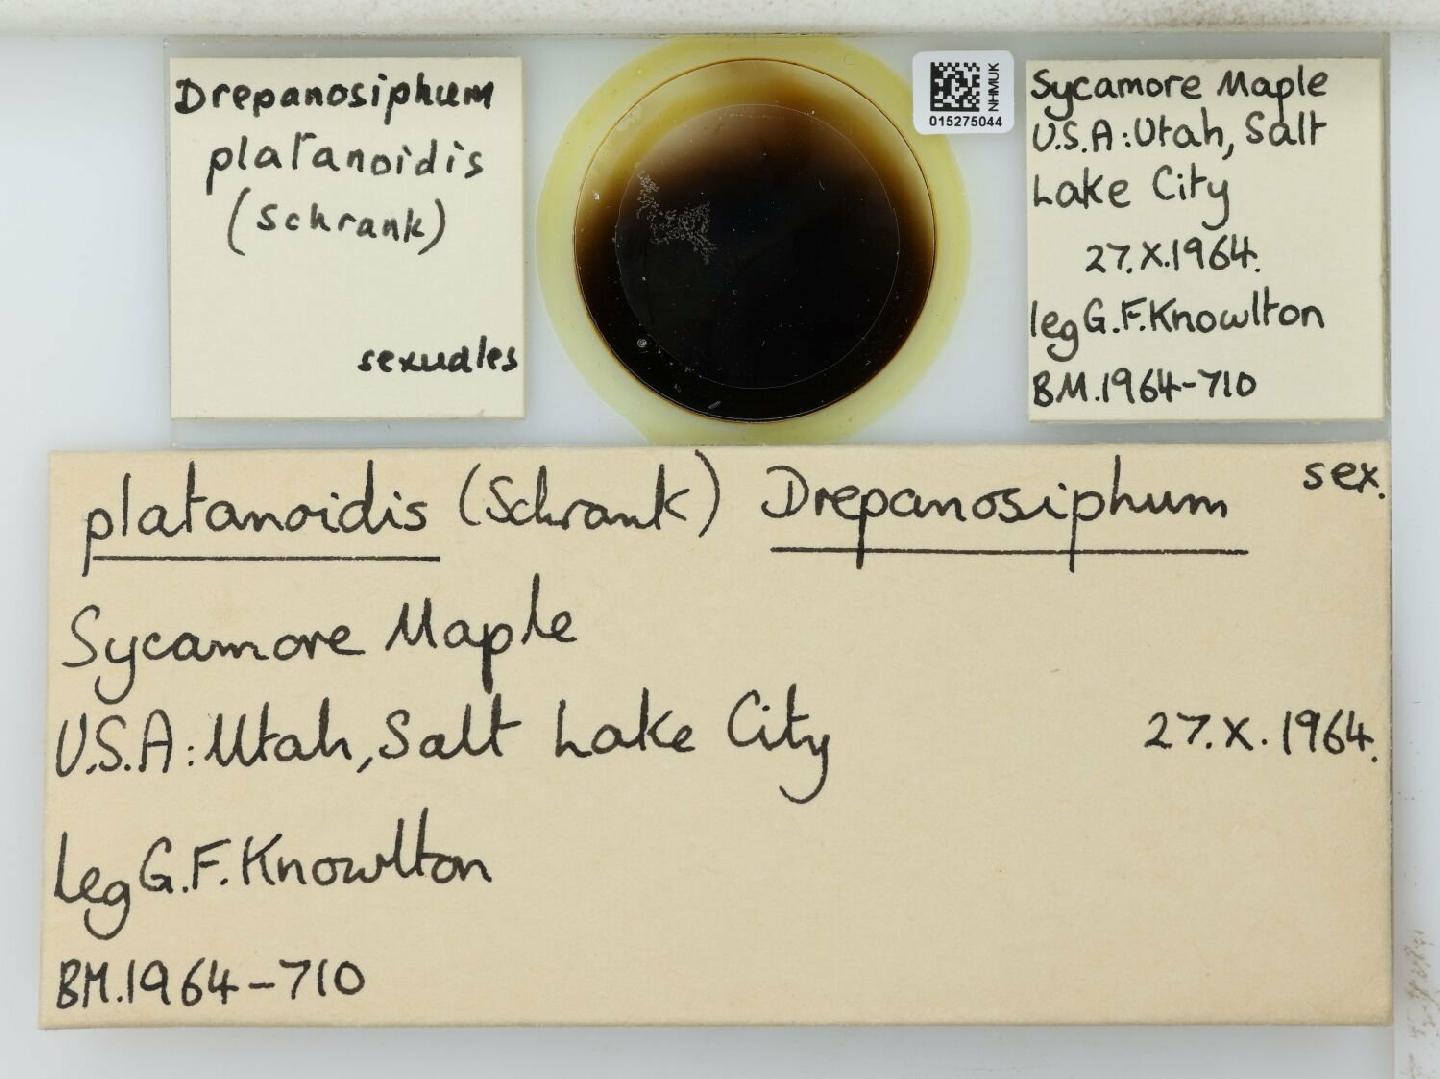 Drepanosiphum
platanoidis
(Schrank)
sexuales
NHMUK
015275044
Sycamore Maple
U.S.A:Utah, Salt
Lake City
27.X.1964.
leg G.F.Knowlton
BM.1964-710
platanoidis (Schrank) Drepanosiphum sex.
Sycamore Maple
U.S.A:Utah, Salt Lake City 27.X.1964.
leg G.F.Knowlton
BM.1964-710